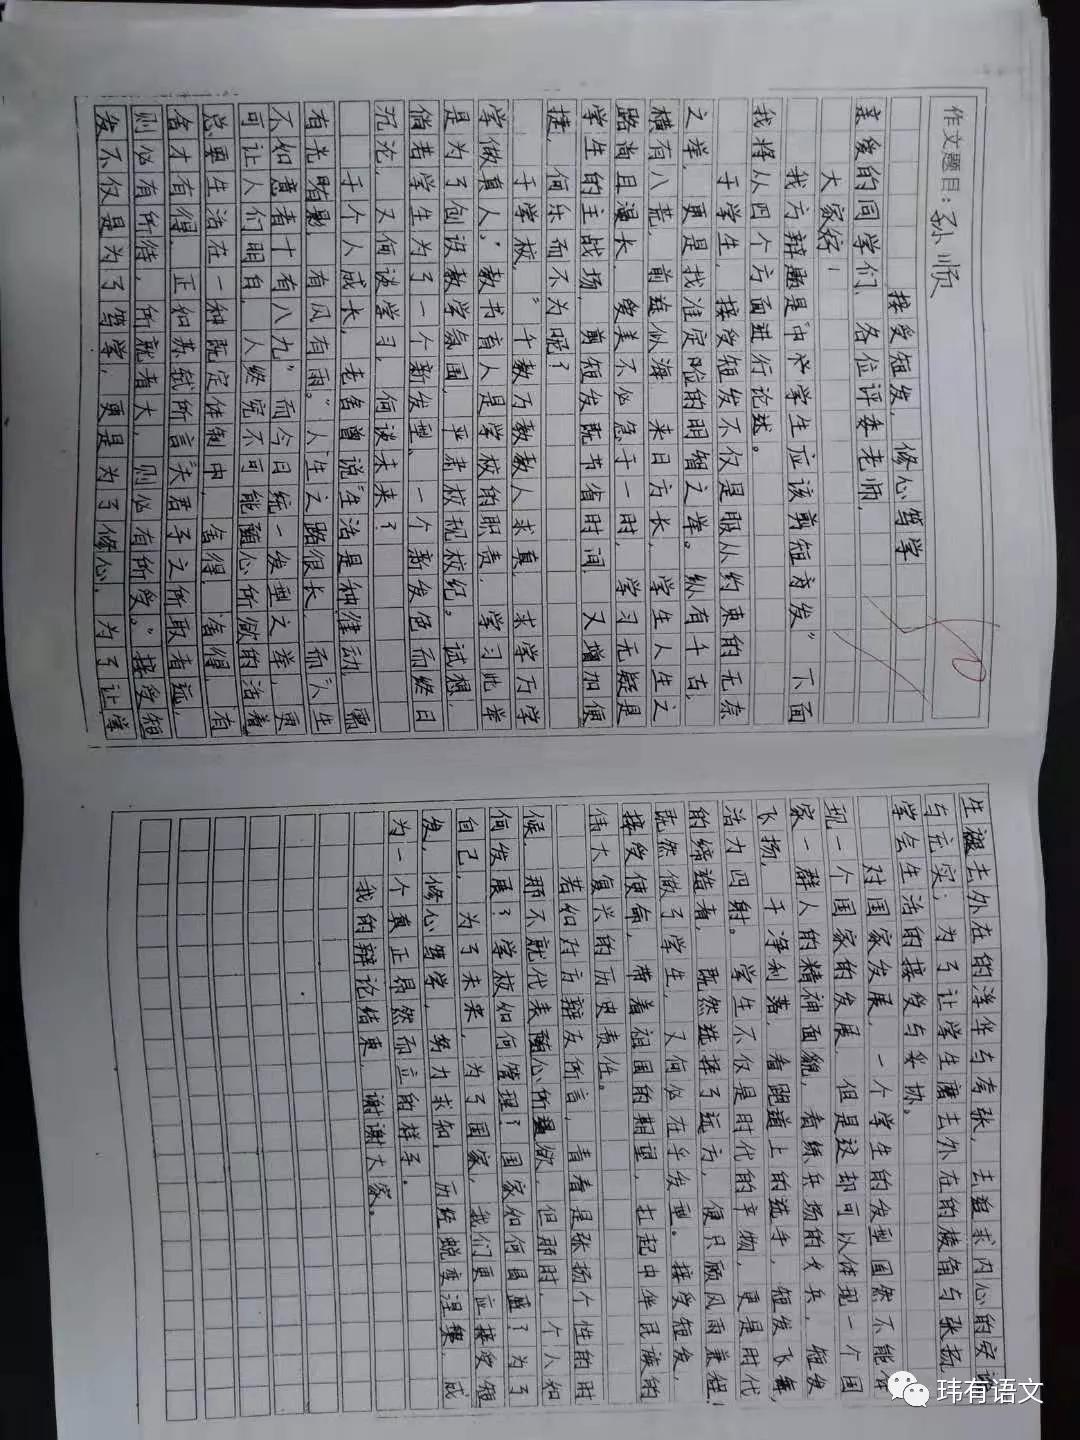 作文题目：孙顺
接受短发，修心笃学
亲爱的同学们、各位评委老师，
大家好！
我方辩题是“中学生应该剪短发”下面
我将从四个方面进行论述。
于学生，接受短发不仅是服从约束的无奈
之举，更是找准定位的明智之举。纵有千古，
横有八荒，前途似海，来日方长，学生人生之
路尚且漫长，爱美不必急于一时，学习无疑是
学生的主战场，剪短发既节省时间，又增加便
捷，何乐而不为呢？
于学校，“千教万教教人求真，求学万学
学做真人，”教书育人是学校的职责，学习此举
是为了创设教学氛围，严肃校规校纪。试想，
倘若学生为了一个新发型、一个新发色而终日
沉沦，又何谈学习，何谈未来？
于个人成长，老舍曾说“生活是种律动，需
有光暗影，有风有雨。”人生之路很长，而“人生
不如意者十有八九”而今日统一发型之举，更
可让人们明白，人终究不可能随心所欲的活着
总要生活在一种既定体制中，舍得，舍得，有
舍才有得，正如苏轼所言“夫君子之所取者远，
则必有所待，所就者大，则必有所受。”接受短
发不仅是为了笃学，更是为了修心，为了让学
生褪去外在的浮华与夸张，去追求内心的安
与充实；为了让学生磨去外在的棱角与张扬
学会生活的接受与妥协。
对国家发展，一个学生的发型固然不能体
现一个国家的发展，但是这却可以体现一个国
家一群人的精神面貌，看练兵场的女兵，短发
飞扬，干净利落，看跑道上的选手，短发飞舞，
活力四射。学生不仅是时代的产物，更是时代
的缔造者，既然选择了远方，便只顾风雨兼程！
既然做了学生，又何必在乎发型。接受短发，
接受使命，带着祖国的期望，扛起中华民族的
伟大复兴的历史责任。
若如对方辩友所言，青春是张扬个性的时
候，那不就代表随心所欲，但那时，个人如
何发展？学校如何管理？国家如何昌盛？为了
自己，为了未来，为了国家，我们更应接受短
发，修心笃学，努力求知，历经蜕变涅槃，成
为一个真正昂然而立的样子。
我的辩论结束，谢谢大家。
玮有语文